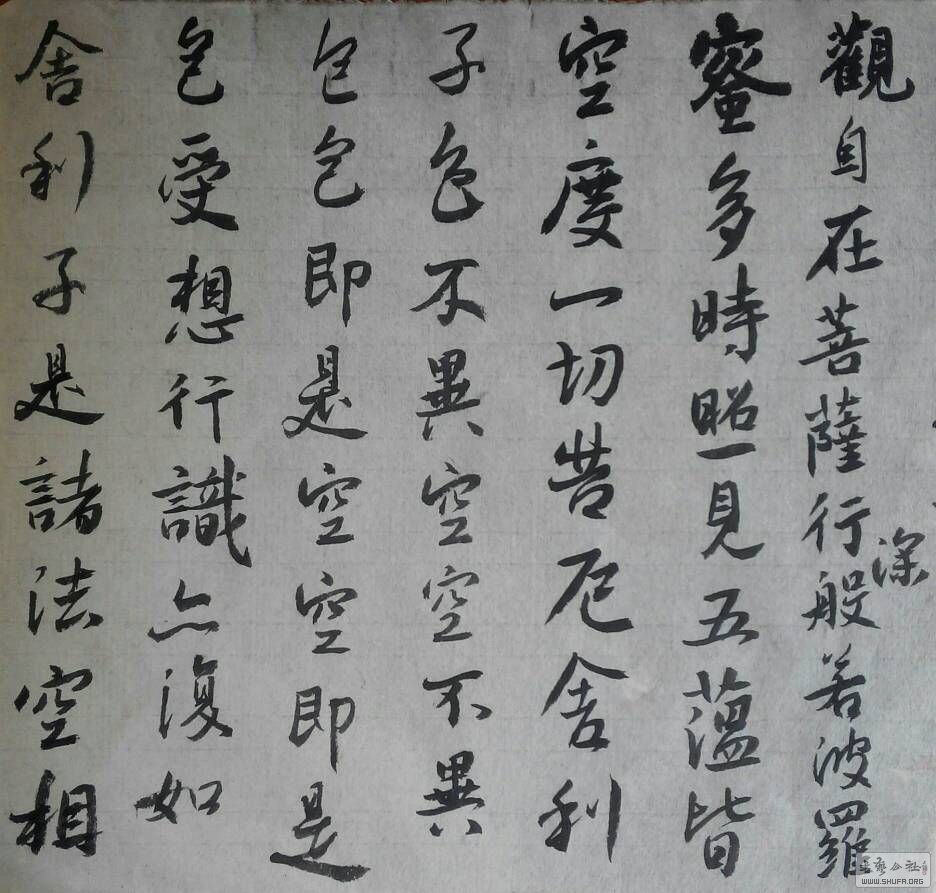 觀自在菩薩行深般若波羅
蜜多時照見五蘊皆
空度一切苦厄舍利
子色不異空空不異
色色即是空空即是
色受想行識亦復如
舍利子是諸法空相
WWW.SHUFA.ORG